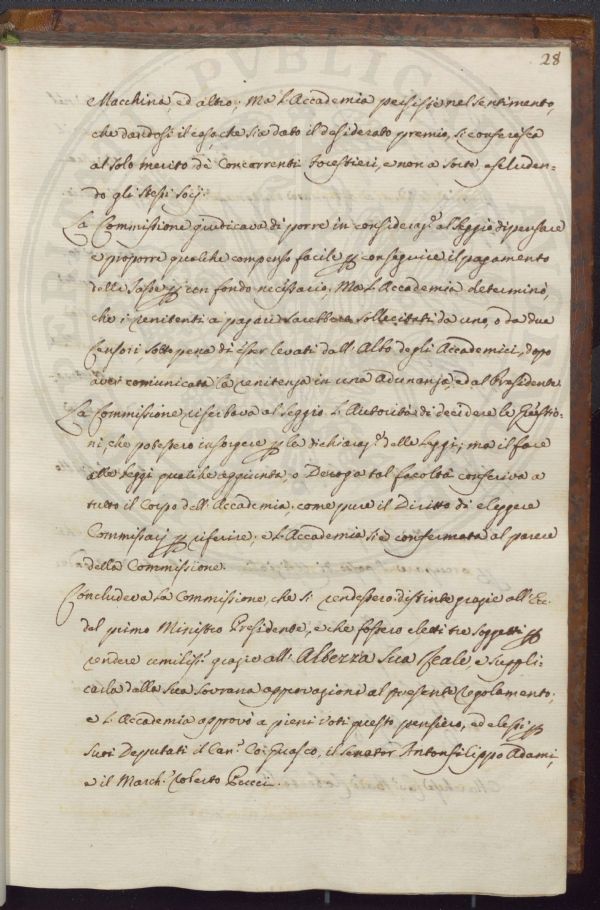 28
e Macchina ed altro; Ma l'Accademia persistè nel sentimento,
che dandosi il caso, che sia dato il desiderato premio, si conferisca
al solo merito de Concorrenti forestieri, e non a sorte escluden-
do gli stessi Socij.
La Commissione giudicava di porre in consideraz.e al Seggio di pensare
e proporre qualche compenso facile p conseguire il pagamento
delle Tasse p con fondo necessario; Ma l'Accademia determinò,
che i renitenti a pagare sarebbero sollecitati da uno, o da due
Censori sotto pena di esser levati dall'Albo degli Accademici, dopo
aver comunicata la renitenza in una Adunanza e dal Presidente.
La Commissione riserbava al Seggio l'Autorità di decidere le Questio-
ni, che potessero insorgere p la dichiaraz.e delle Leggi; ma il fare
alle Leggi qualche aggiunta, o Deroga tal facoltà conferiva a
tutto il Corpo dell'Accademia, come pure il Diritto di eleggere
Commissarj p riferire; e l'Accademia si è confermata al parere
della Commissione.
Concludeva La Commissione, che si rendessero distinte grazie all'Ec.
del primo Ministro Presidente, e che fossero eletti tre Soggetti p
rendere umiliss.e grazie all' Altezza Sua Reale e suppli-
carla della Sua Sovrana approvazioni al presente Regolamento;
e l'Accademia approvò a pieni voti questo pensiero, ed elesse p
Suoi Deputati il Can.o Co: Guasco, il Senator Antonfilippo Adami,
e il March: Roberto Pucci.